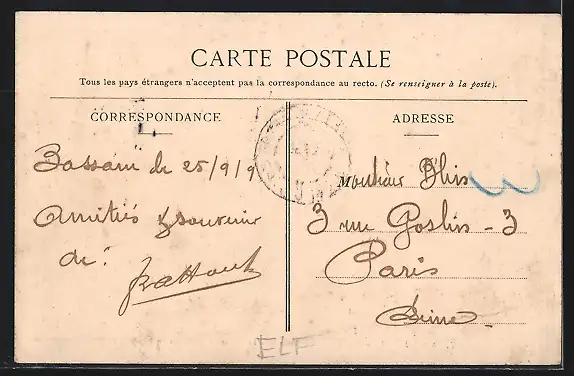 CARTE POSTALE
Tous les pays étrangers n'acceptent pas la correspondance au recto. (Se renseigner à la poste).
CORRESPONDANCE
Bassam le 25/9/9
Amitiés & souvenir
de
ADRESSE
Monsieur D'his
3 rue Goslin - 3
Paris
Seine
ELF